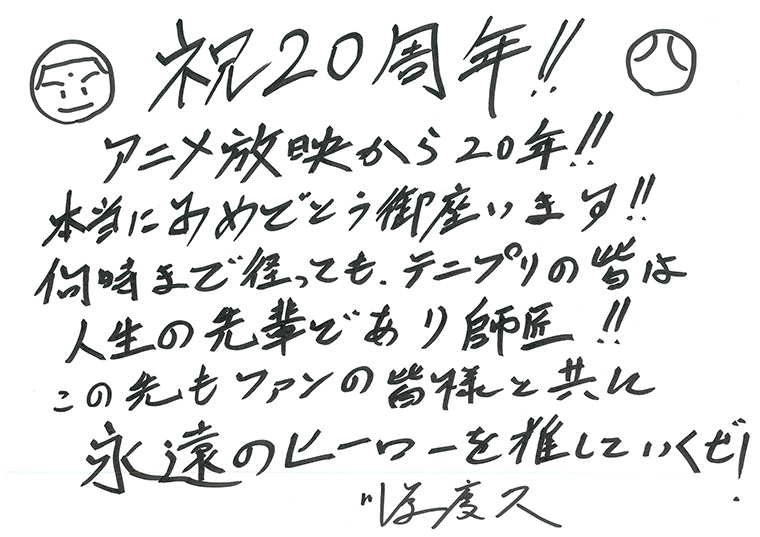 祝20周年!!
アニメ放映から20年!!
本当におめでとう御座います!!
何時まで経っても、テニプリの皆は
人生の先輩であり師匠!!
この先もファンの皆様と共に
永遠のヒーローを推していくぜ!